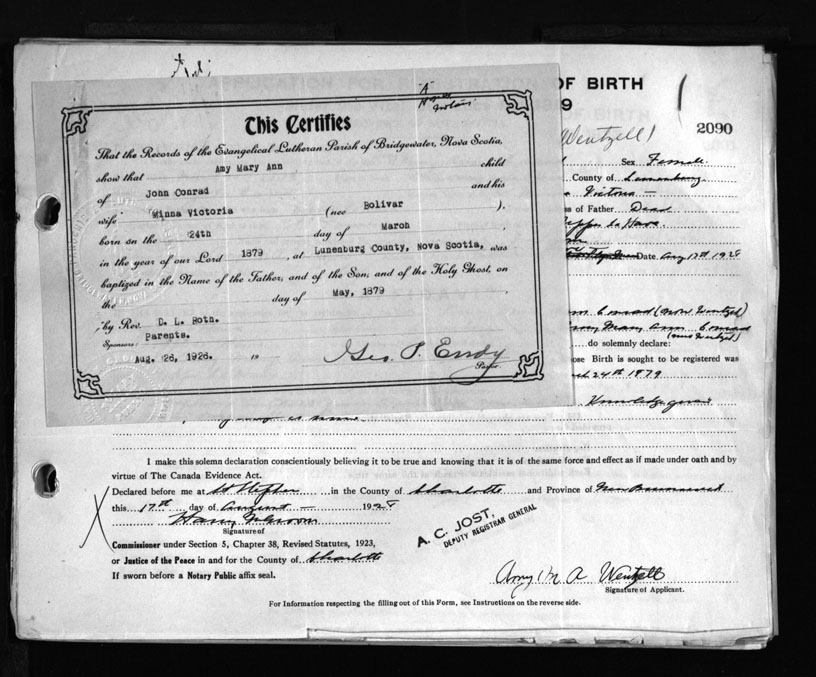 OF BIRTH
9
2090
Wentzell
Sex Female
County of Lunenburg
Victoria
of Father Dead
Date Aug 17th 1928
This Certifies
That the Records of the Evangelical Lutheran Parish of Bridgewater, Nova Scotia,
show that Amy Mary Ann child
of John Conrad and his
wife Minna Victoria (nee Bolivar ),
born on the 24th day of March
in the year of our Lord 1879, at Lunenburg County, Nova Scotia, was
baptized in the Name of the Father, and of the Son, and of the Holy Ghost, on
the day of May, 1879
by Rev. D. L. Roth.
Sponsors: Parents.
Aug. 26, 1928. 19
Geo. P. Endy
Pastor.
Conrad (now Wentzell)
Mary Ann Conrad
(now Wentzell)
do solemnly declare:
ose Birth is sought to be registered was
24th 1879
Knowledge
I make this solemn declaration conscientiously believing it to be true and knowing that it is of the same force and effect as if made under oath and by
virtue of The Canada Evidence Act.
Declared before me at St Stephen in the County of Charlotte and Province of New Brunswick
this 17th day of August 1928
Signature of
Commissioner under Section 5, Chapter 38, Revised Statutes, 1923,
or Justice of the Peace in and for the County of Charlotte
If sworn before a Notary Public affix seal.
A. C. JOST,
DEPUTY REGISTRAR GENERAL
Amy M A Wentzell
Signature of Applicant.
For Information respecting the filling out of this Form, see Instructions on the reverse side.